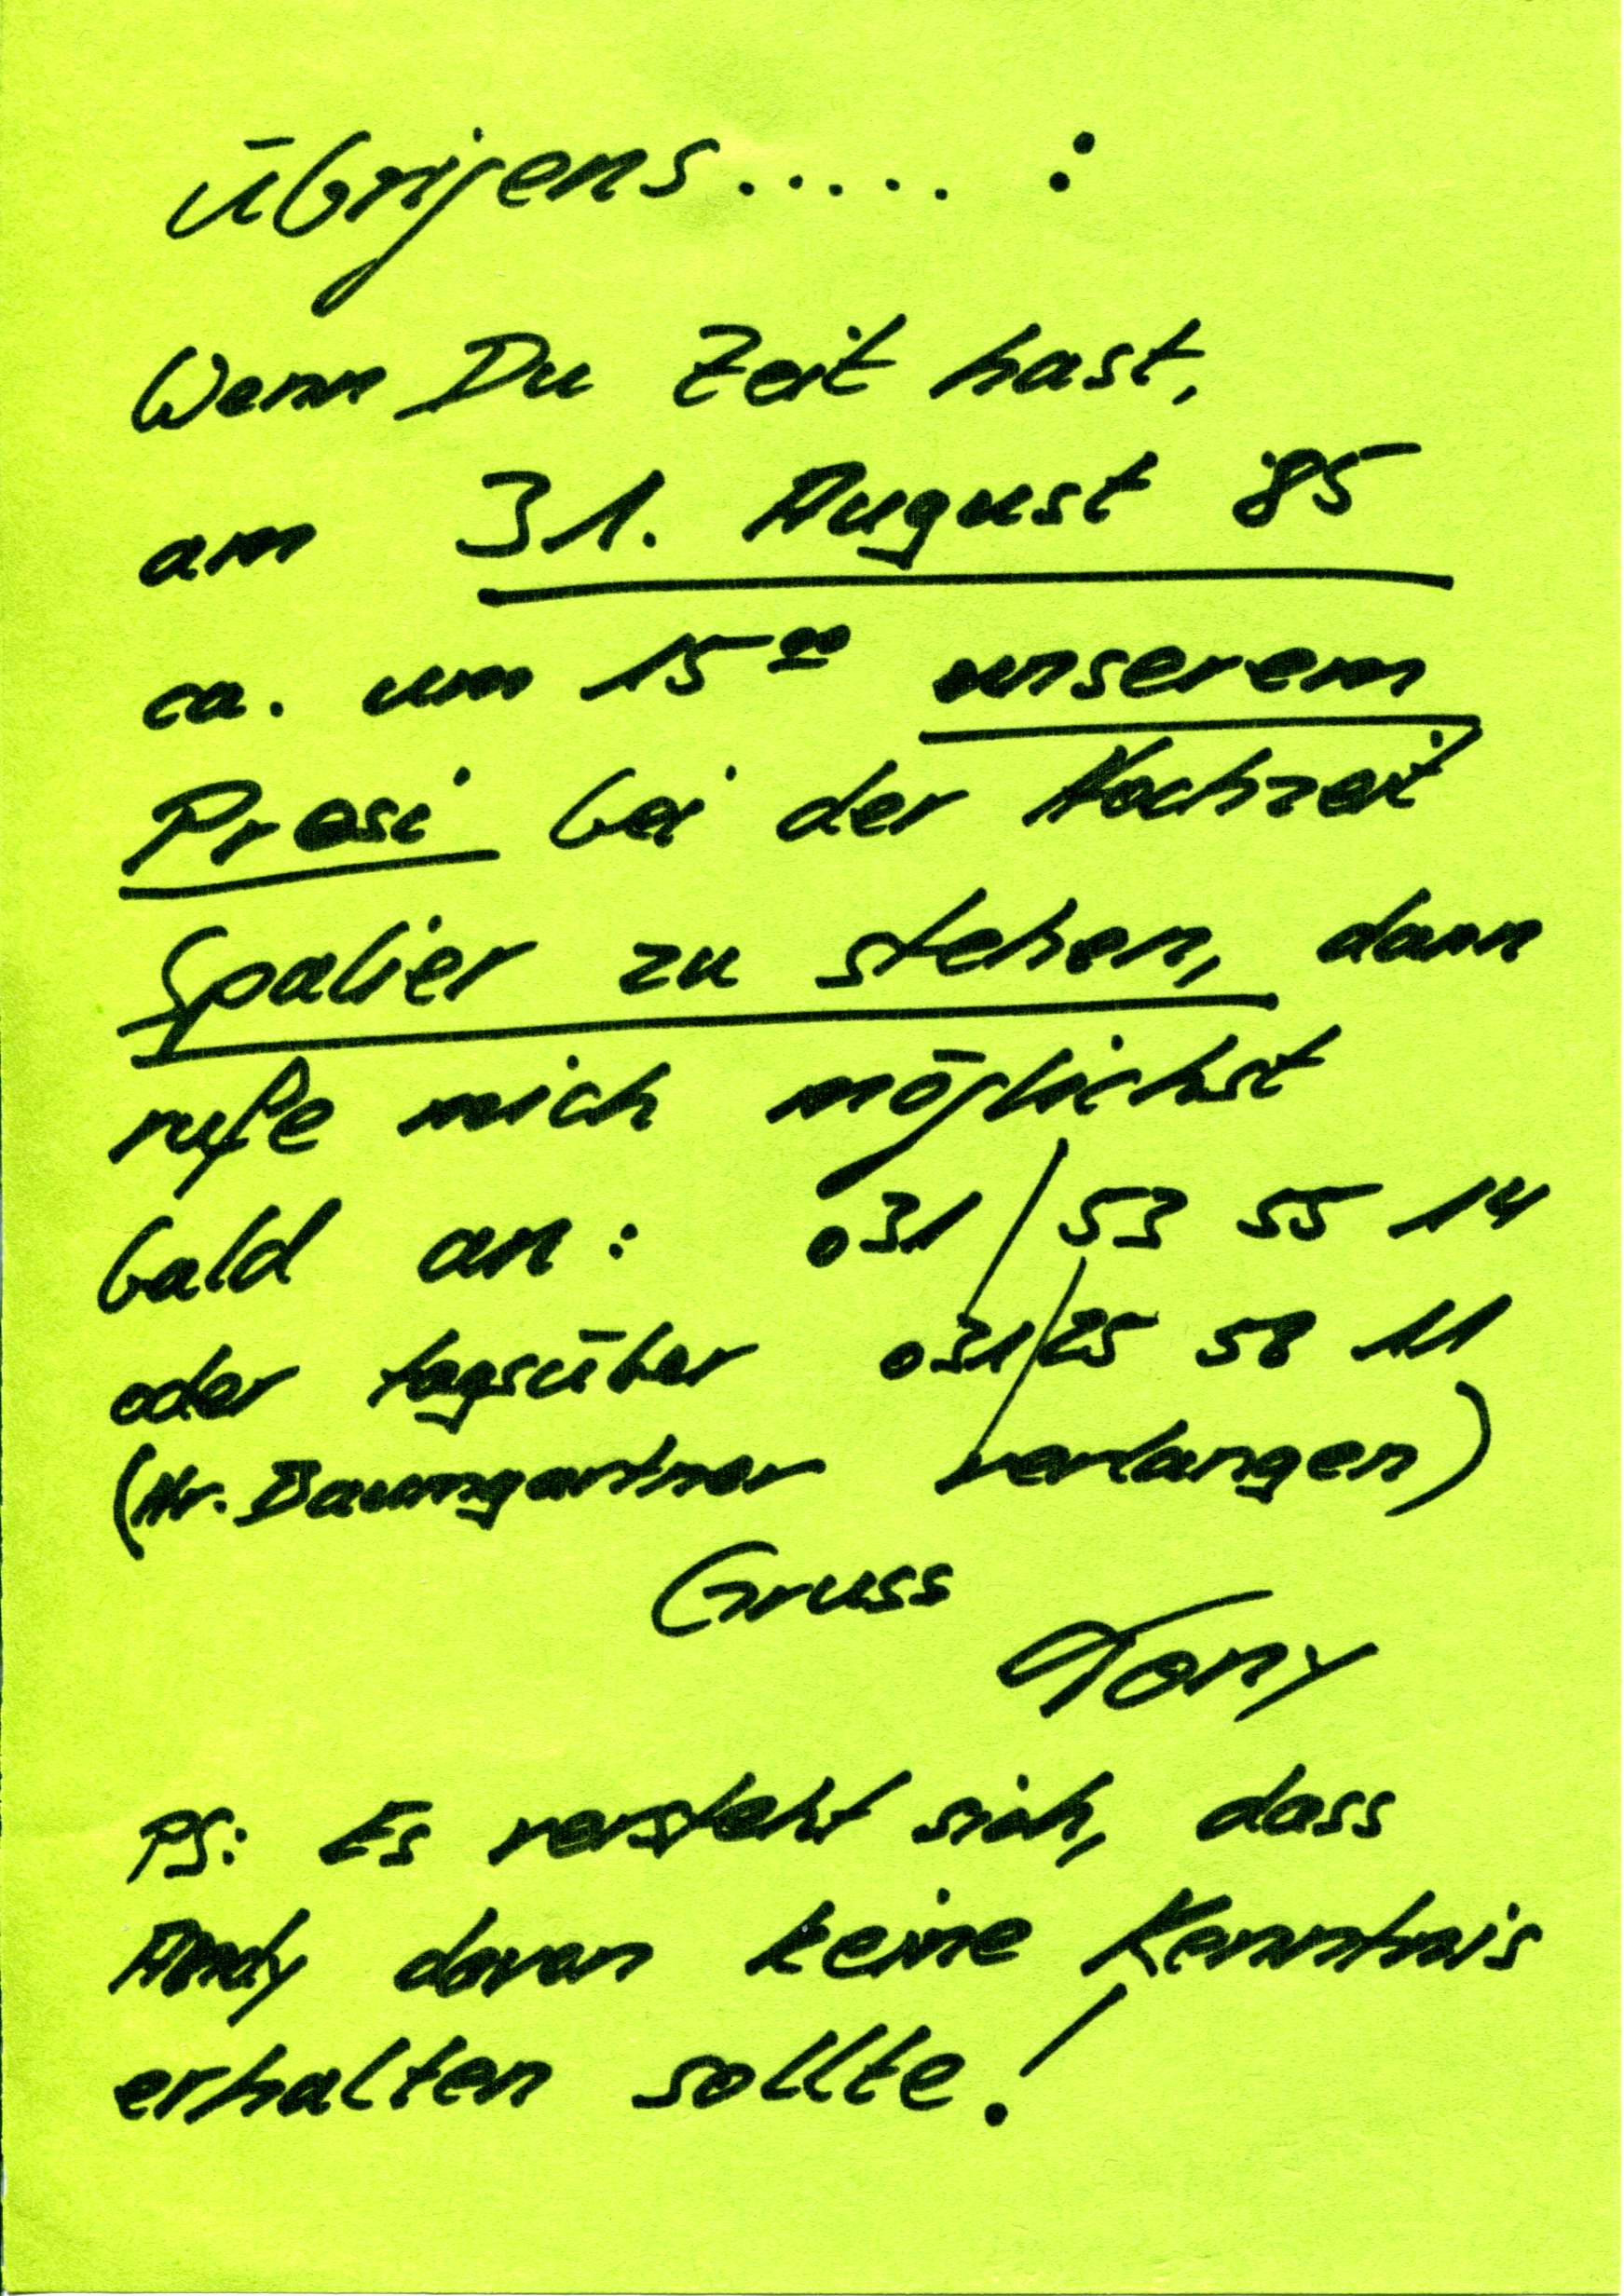 übrigens..... :
Wenn Du Zeit hast,
am 31. August '85
ca. um 15⁰⁰ unserem
Presi bei der Hochzeit
Spalier zu stehen, dann
rufe mich möglichst
bald an: 031/53 55 14
oder tagsüber 031/25 58 11
(Hr. Baumgartner verlangen)
Gruss
Tony
PS: Es versteht sich, dass
Andy davon keine Kenntnis
erhalten sollte!